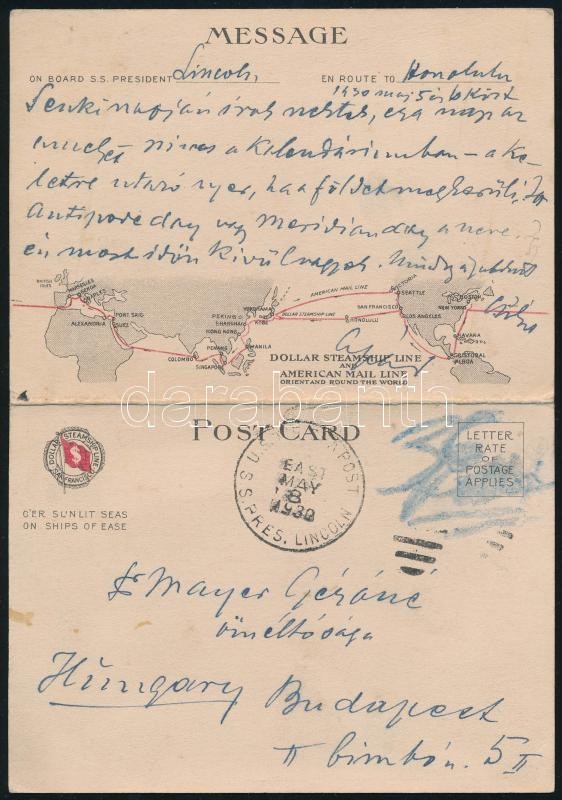 MESSAGE
ON BOARD S.S. PRESIDENT Lincoln, EN ROUTE TO Honolulu
1930 maj 5 és 6 közt
Senki napján írok nektek, egy nap az
nincs a kalendáriumban – a ke-
letre utazó nyer, ha a földet megkerüli,
Antipode day vagy Meridian day a neve.
én most időn kívül vagyok.
BRITISH ISLES
MARSEILLES
GENOA
NAPLES
ALEXANDRIA
PORT SAID
SUEZ
COLOMBO
PENANG
SINGAPORE
PEKING
SHANGHAI
HONG KONG
MANILA
YOKOHAMA
KOBE
AMERICAN MAIL LINE
DOLLAR STEAMSHIP LINE
HONOLULU
VICTORIA
SEATTLE
SAN FRANCISCO
LOS ANGELES
BOSTON
NEW YORK
HAVANA
CRISTOBAL
BALBOA
DOLLAR STEAMSHIP LINE
AND
AMERICAN MAIL LINE
ORIENT AND ROUND THE WORLD
darabanth
POST CARD
DOLLAR STEAMSHIP LINE
SAN FRANCISCO
$
O'ER SUNLIT SEAS
ON SHIPS OF EASE
EAST
MAY
8
1930
S.S. PRES. LINCOLN
LETTER
RATE
OF
POSTAGE
APPLIES
Mayer Gézáné
őméltósága
Hungary Budapest
II bimbó u. 5 II